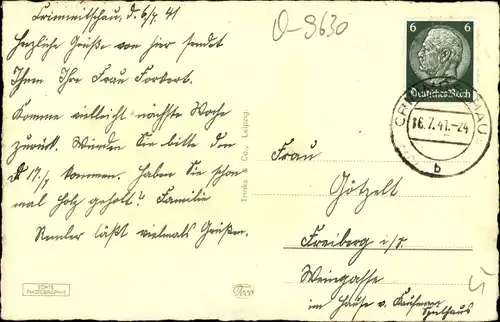 Crimmitschau, d. 6/7. 41
Herzliche Grüße von hier sendet
Ihnen Ihre Frau Forbert.
Komme vielleicht nächste Woche
zurück. Würden Sie bitte den
17./7 kommen. Haben Sie schon
mal Holz geholt? Familie
Remler läßt vielmals Grüßen.
O-9630
6 6
Deutsches Reich
16.7.41.-24
b
Trinks & Co., Leipzig.
Frau
Götzelt
Freiberg i/S.
Weingasse
im Hause v. Kaufmann
ECHTE
PHOTOGRAPHIE
Trico